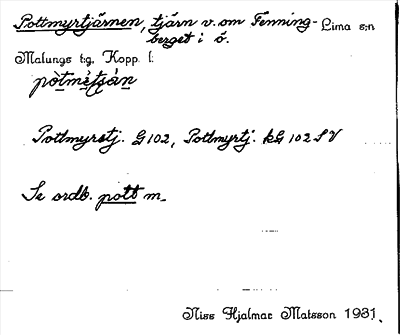 Pottmyrtjärnen, tjärn v. om Fenning- Lima s:n
berget i ö.
Malungs t:g, Kopp. l:
Pottmyrstj. G 102, Pottmyrtj. kG 102 S V
Se ordb. pott m.
Niss Hjalmar Matsson 1931.